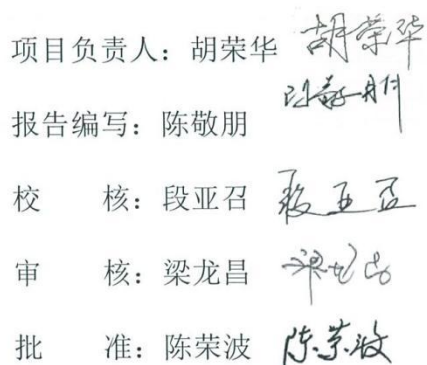 项目负责人：胡荣华 胡荣华
报告编写：陈敬朋 陈敬朋
校　　核：段亚召 段亚召
审　　核：梁龙昌 梁龙昌
批　　准：陈荣波 陈荣波